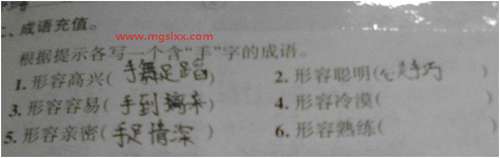 www.mgslxx.com
二、成语充值。
根据提示各写一个含“手”字的成语。
1. 形容高兴(手舞足蹈) 2. 形容聪明(心灵手巧)
3. 形容容易(手到擒来) 4. 形容冷漠( )
5. 形容亲密(手足情深) 6. 形容熟练( )